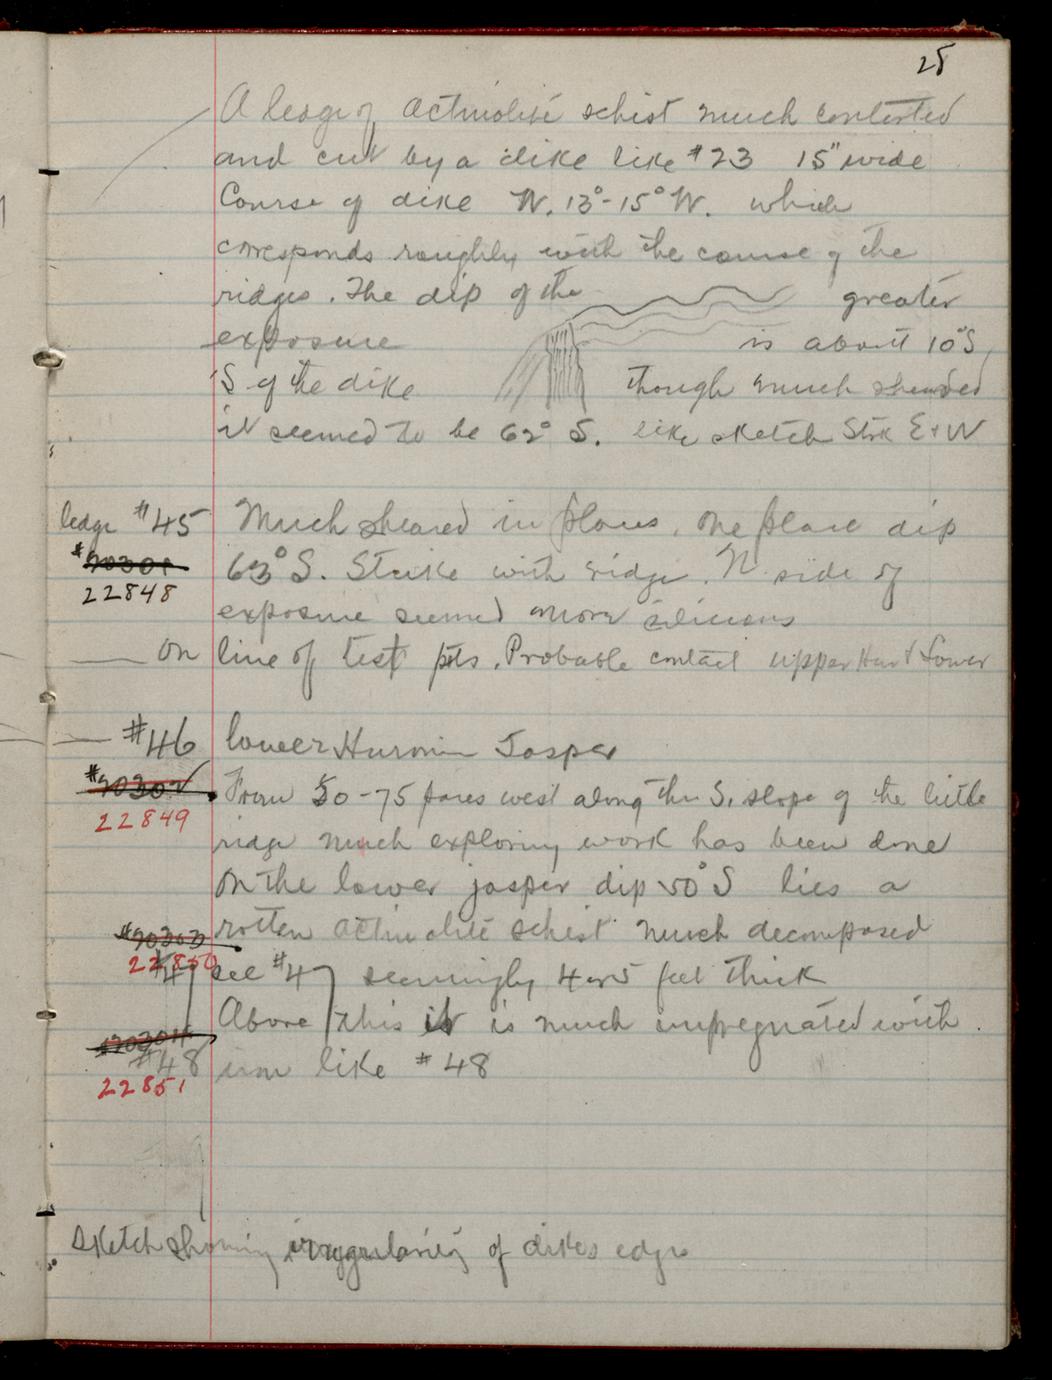 25
A ledge of actinolite schist much contorted
and cut by a dike like #23 15" wide
Course of dike N. 13°-15° W. which
corresponds roughly with the course of the
ridges. The dip of the greater
exposure is about 10° S,
S of the dike though much sheared
it seemed to be 62° S. like sketch Strk E+W
ledge #45 Much sheared in places. One place dip
#20301
22848
63° S. Strike with ridge. N side of
exposure seemed more silicious
On line of test pits. Probable contact upper Hur & Lower
#46 lower Huronin Jasper
#20302
22849
From 50-75 paces west along the S. slope of the little
ridge much exploring work has been done
On the lower jasper dip 50° S lies a
#20303 rotten actinolite schist much decomposed
22850
#47 see #47 seemingly 4 or 5 feet thick
Above this it is much impregnated with
#20304
#48 iron like #48
22851
Sketch showing irregularity of dikes edge